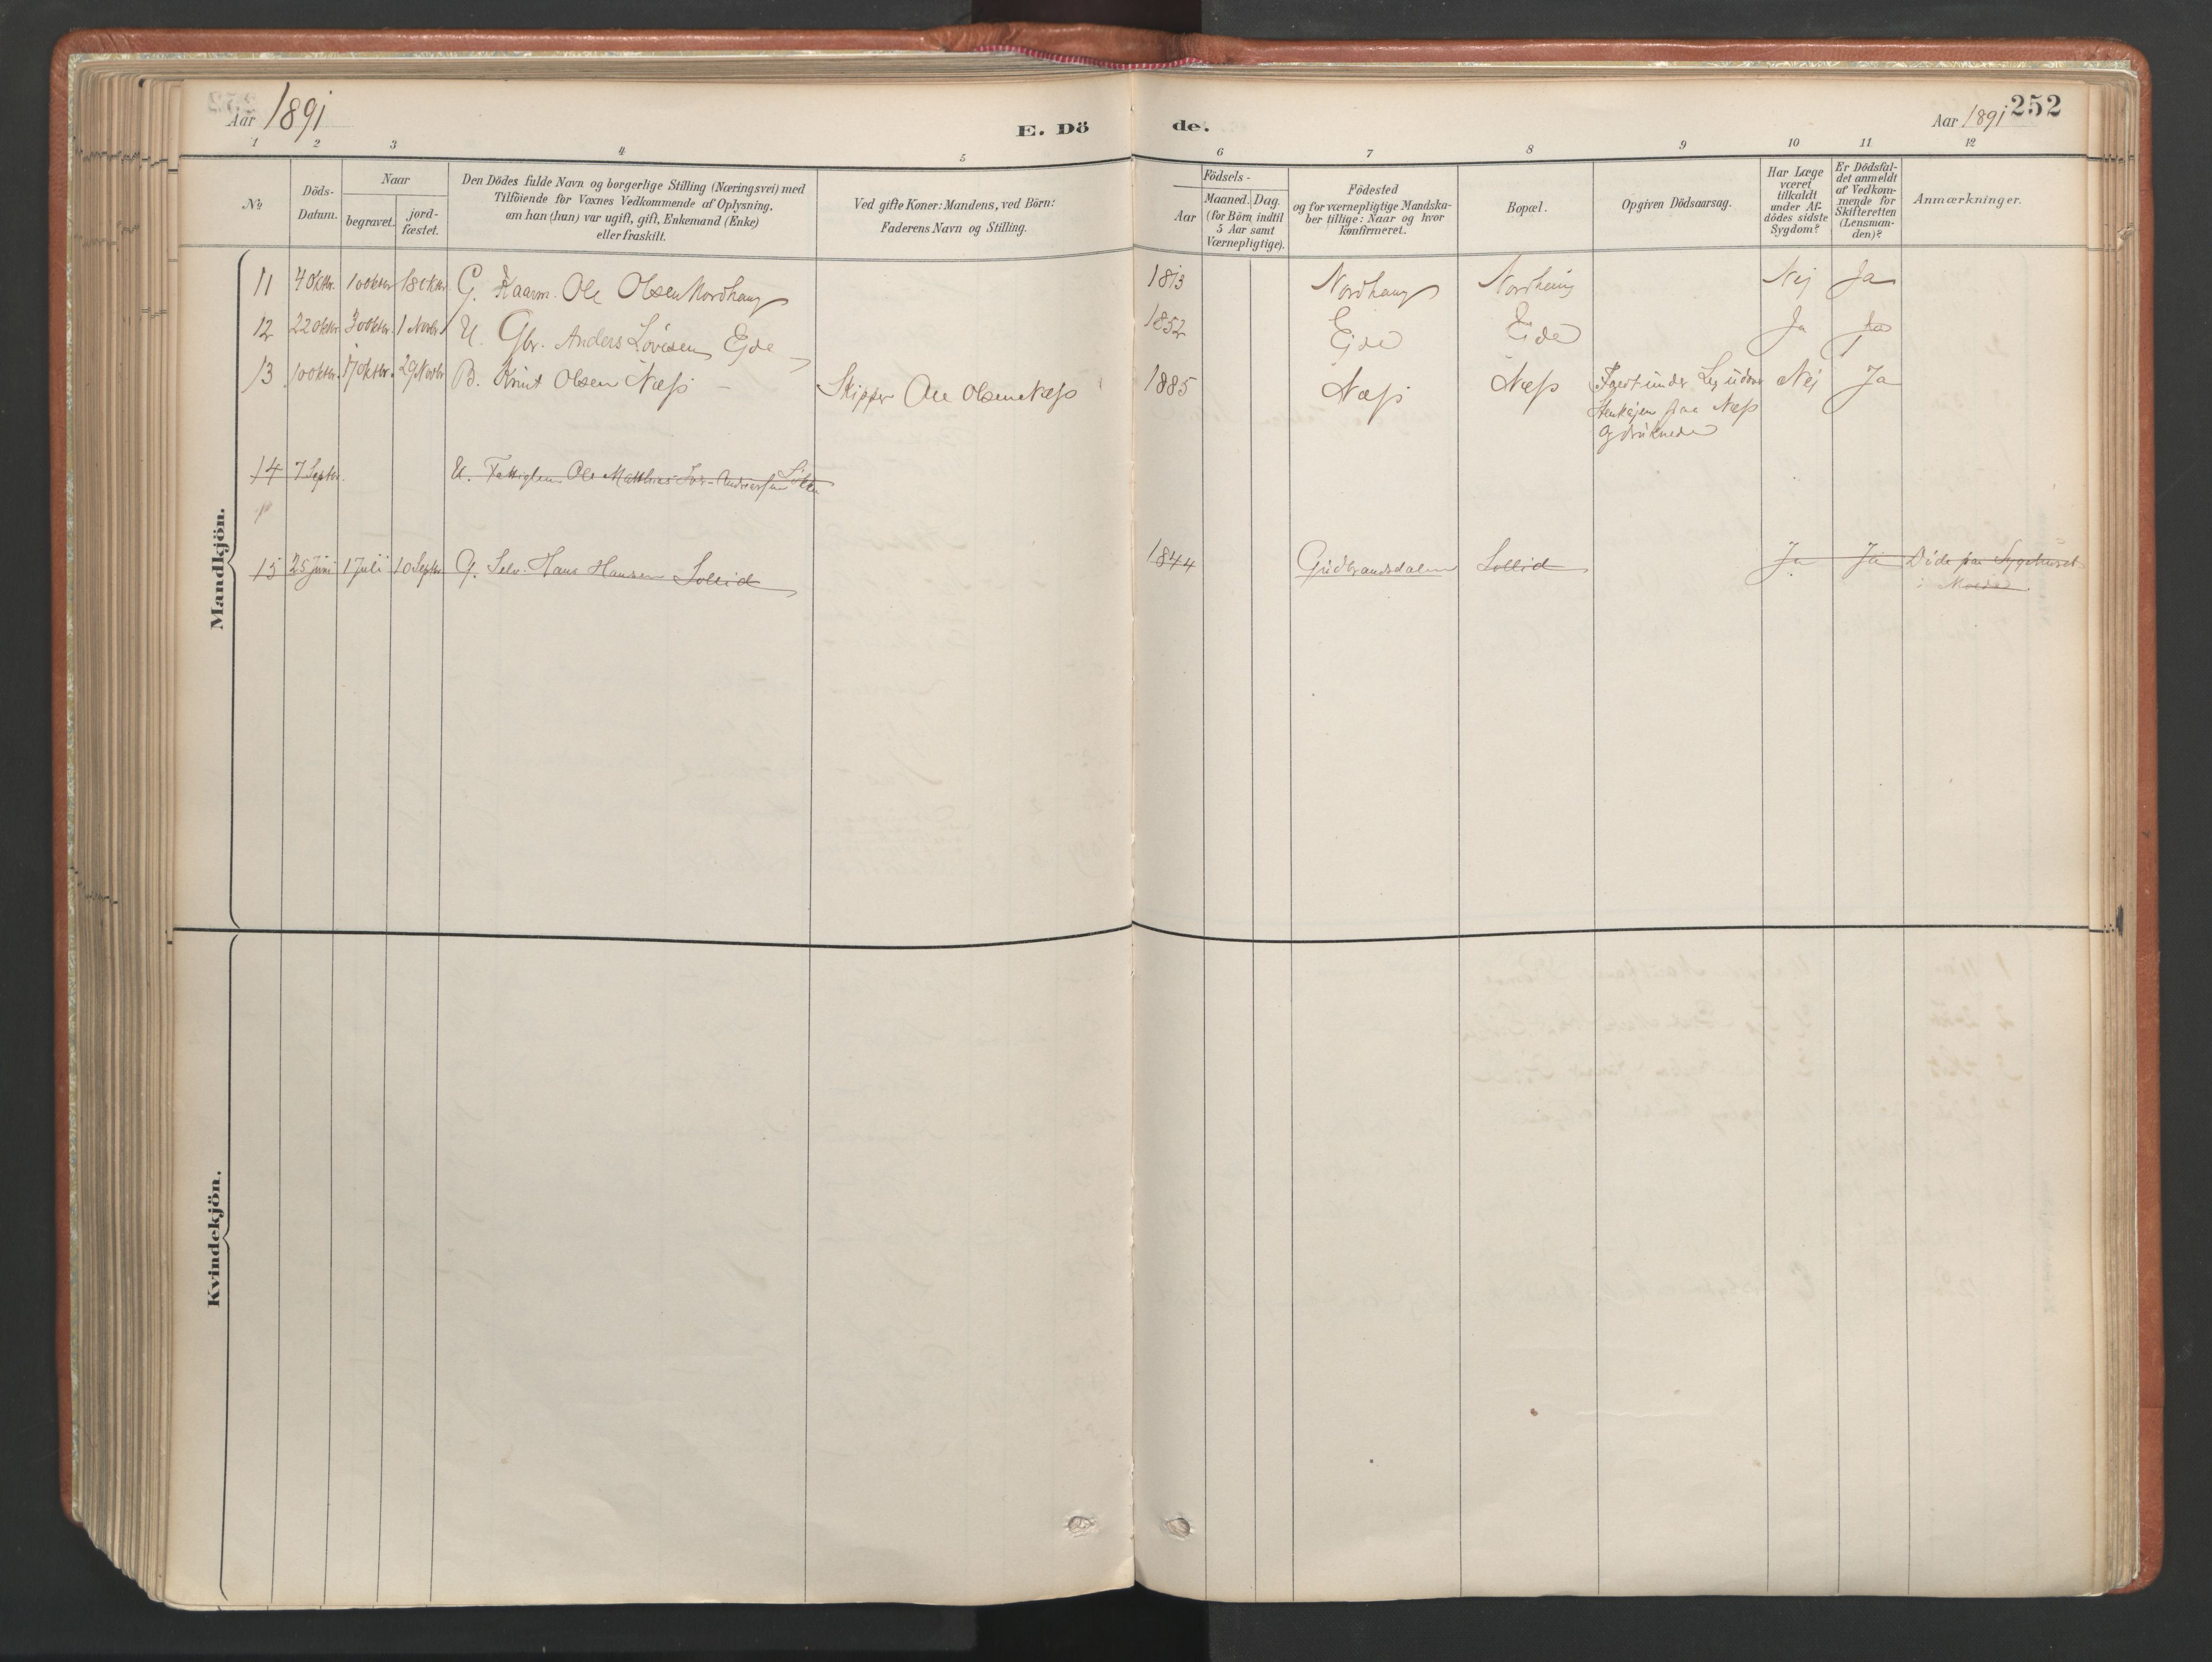 Aar 1891
E. Dö
de.
Aar 1891
252
1 2 3 4 5 6 7 8 9 10 11 12
№
Döds-
Datum.
Naar
begravet.
jord-
fæstet.
Den Dödes fulde Navn og borgerlige Stilling (Næringsvei) med
Tilföiende for Voxnes Vedkommende af Oplysning,
om han (hun) var ugift, gift, Enkemand (Enke)
eller fraskilt.
Ved gifte Koner: Mandens, ved Börn:
Faderens Navn og Stilling.
Födsels-
Aar
Maaned. Dag.
(for Börn indtil
5 Aar samt
Værnepligtige).
Födested
og for værnepligtige Mandska-
ber tillige: Naar og hvor
konfirmeret.
Bopæl.
Opgiven Dödsaarsag.
Har Læge
været
tilkaldt
under Af-
dödes sidste
Sygdom?
Er Dödsfal-
det anmeldt
af Vedkom-
mende for
Skifteretten
(Lensman-
den)?
Anmærkninger.
Mandkjön.
11 4 Oktbr. 10 Oktbr 18 Oktbr G. Kaarm. Ole Olsen Nordhaug 1813 Nordhaug Nordhaug Nej Ja
12 22 Oktbr 30 Oktbr. 1 Novbr U. Gbr. Anders Lovisen Ejde 1852 Ejde Eide Ja Ja
13 10 Oktbr. 17 Oktbr. 29 Novbr B. Knut Olsen Næss Skipper Ole Olsen Næss 1885 Næss Næss under Leg udover Nej Ja
fra Næss
og druknede
14 7 Septbr. U. Ole Matthias
15 25 Juni 1 Juli 10 Septbr G. Selv. Hans Hansen Sollid 1844 Gudbrandsdalen Sollid Ja Ja Döde paa Sygehuset
i Molde
Kvindekjön.